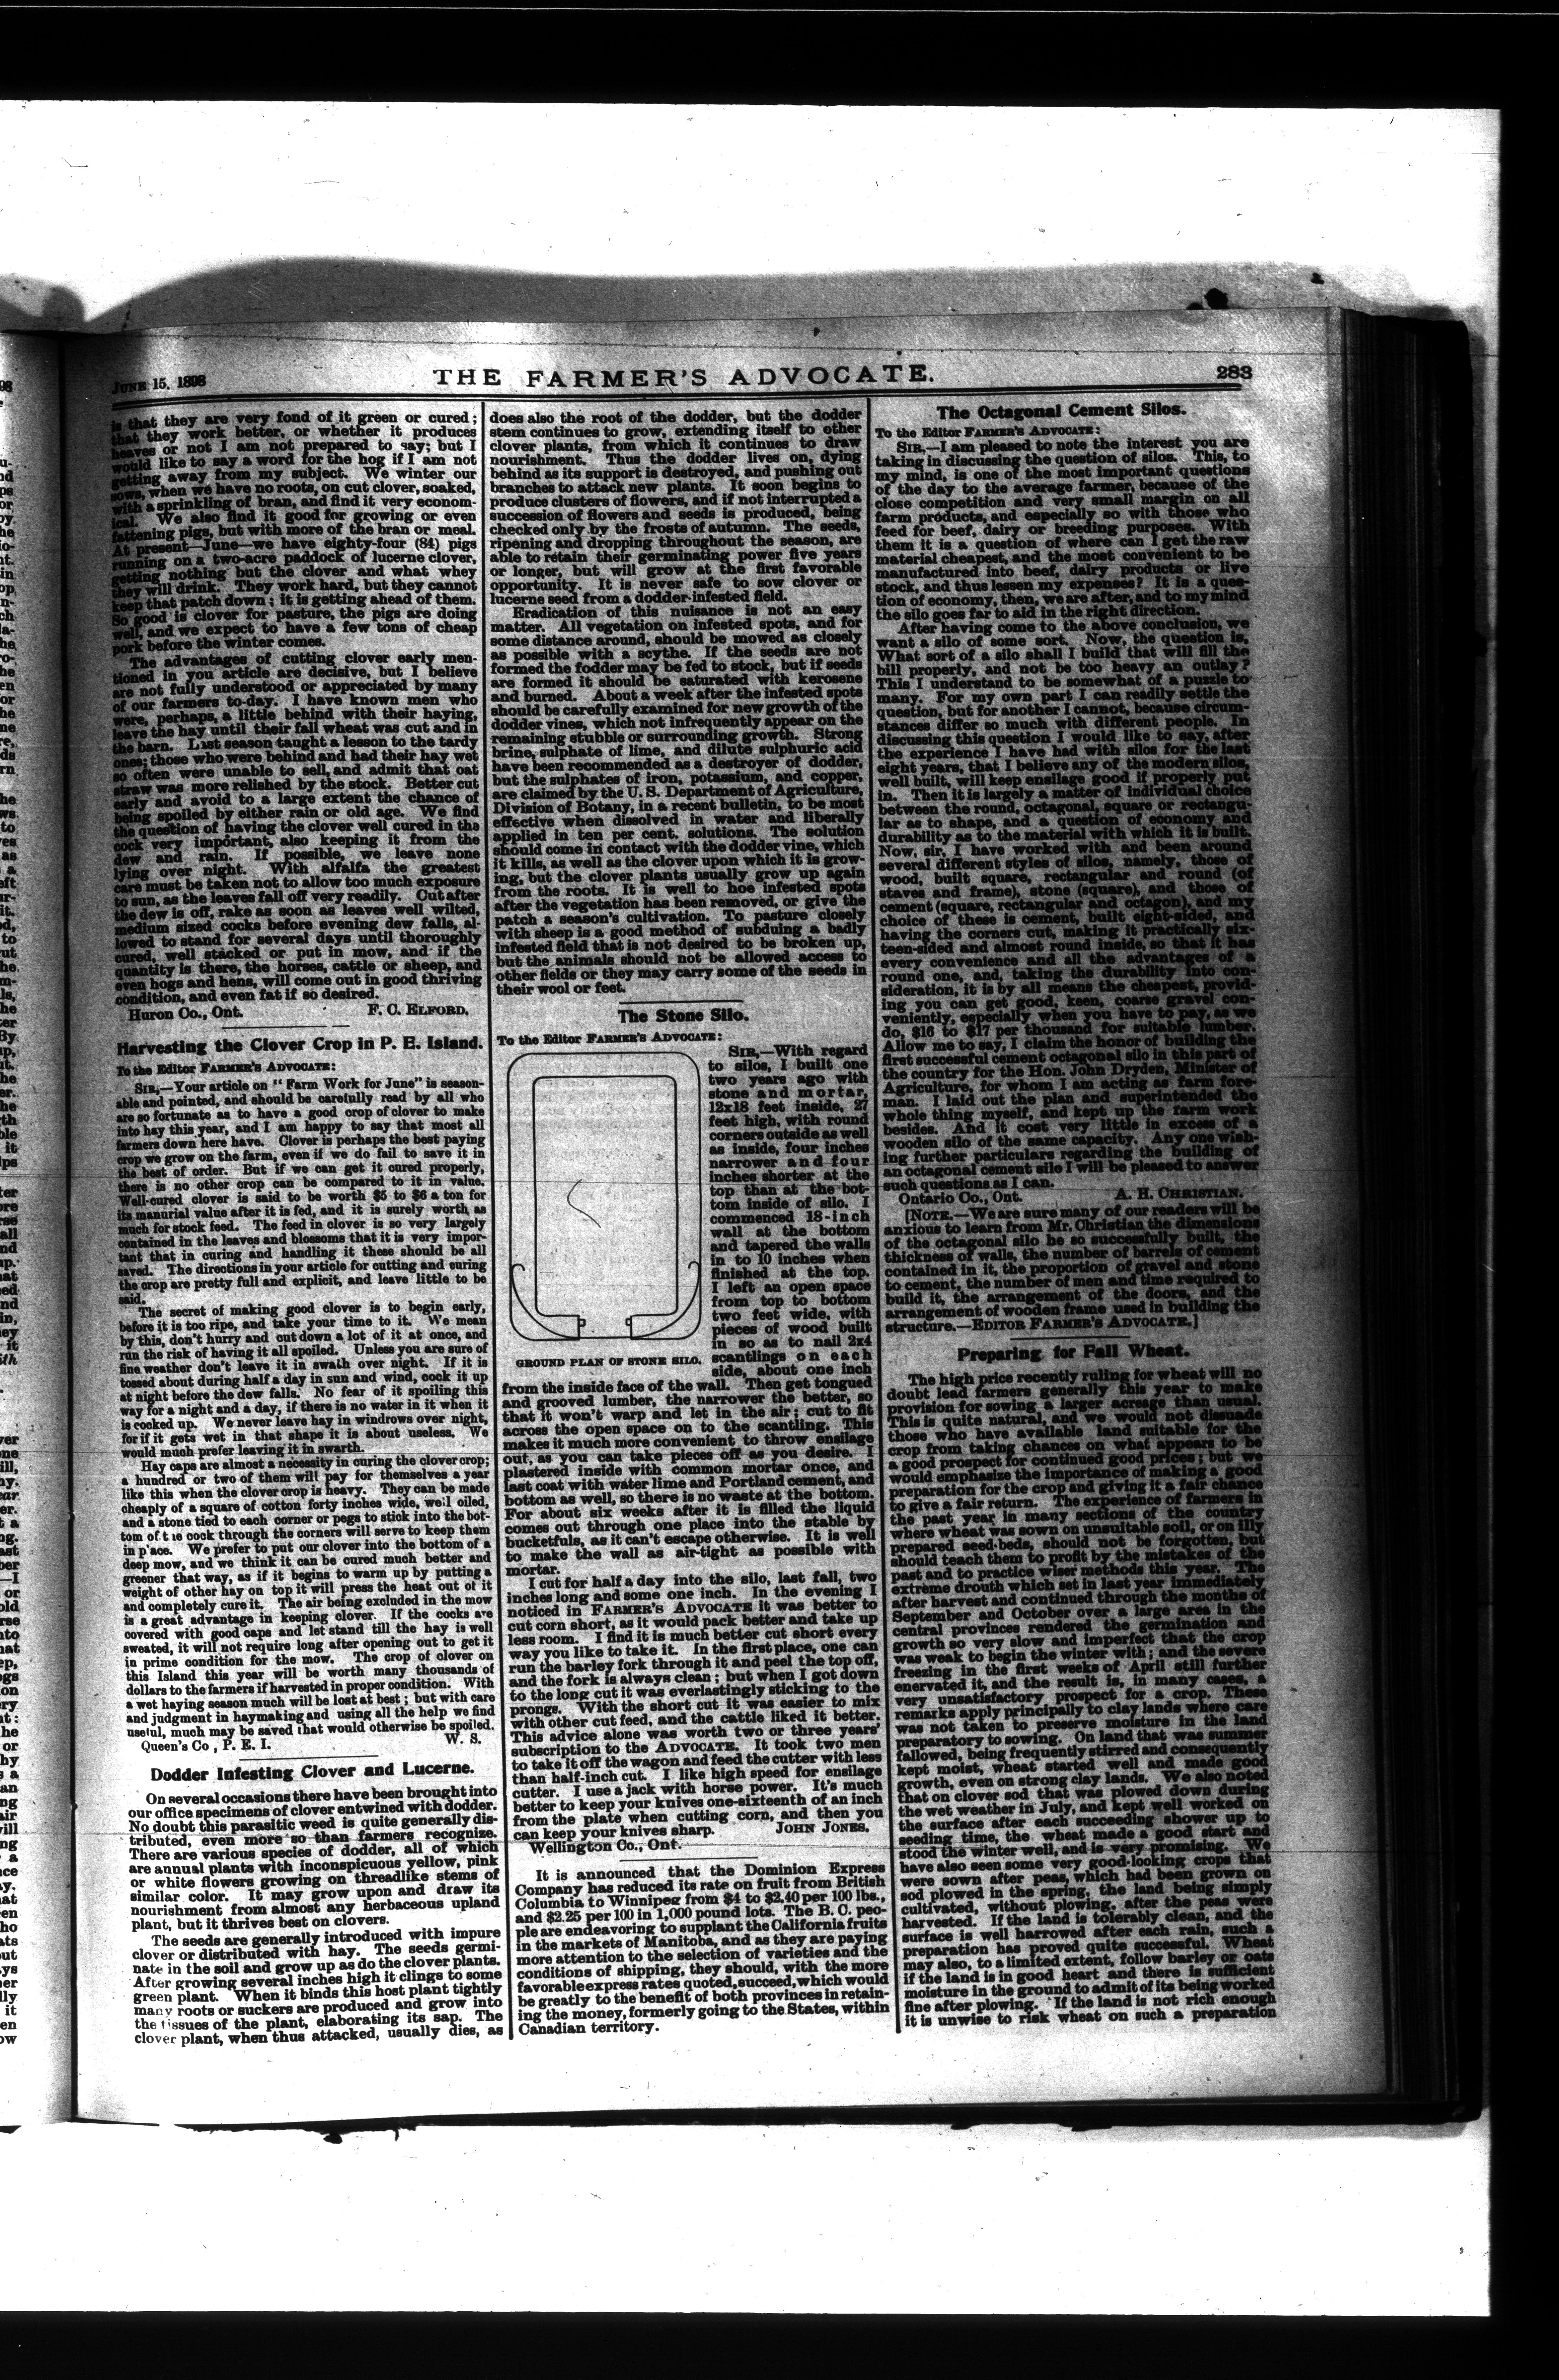 JUNE 15, 1898
THE FARMER'S ADVOCATE.
283
is that they are very fond of it green or cured;
that they work better, or whether it produces
heaves or not I am not prepared to say; but I
would like to say a word for the hog if I am not
getting away from my subject. We winter our
sows, when we have no roots, on cut clover, soaked,
with a sprinkling of bran, and find it very econom-
ical. We also find it good for growing or even
fattening pigs, but with more of the bran or meal.
At present—June—we have eighty-four (84) pigs
running on a two-acre paddock of lucerne clover,
getting nothing but the clover and what whey
they will drink. They work hard, but they cannot
keep that patch down; it is getting ahead of them.
So good is clover for pasture, the pigs are doing
well, and we expect to have a few tons of cheap
pork before the winter comes.
The advantages of cutting clover early men-
tioned in you article are decisive, but I believe
are not fully understood or appreciated by many
of our farmers to-day. I have known men who
were, perhaps, a little behind with their haying,
leave the hay until their fall wheat was cut and in
the barn. Last season taught a lesson to the tardy
ones; those who were behind and had their hay wet
so often were unable to sell, and admit that oat
straw was more relished by the stock. Better cut
early and avoid to a large extent the chance of
being spoiled by either rain or old age. We find
the question of having the clover well cured in the
cock very important, also keeping it from the
dew and rain. If possible, we leave none
lying over night. With alfalfa the greatest
care must be taken not to allow too much exposure
to sun, as the leaves fall off very readily. Cut after
the dew is off, rake as soon as leaves well wilted,
medium sized cocks before evening dew falls, al-
lowed to stand for several days until thoroughly
cured, well stacked or put in mow, and if the
quantity is there, the horses, cattle or sheep, and
even hogs and hens, will come out in good thriving
condition, and even fat if so desired.
Huron Co., Ont. F. C. ELFORD.
Harvesting the Clover Crop in P. E. Island.
To the Editor FARMER'S ADVOCATE:
SIR,—Your article on "Farm Work for June" is season-
able and pointed, and should be carefully read by all who
are so fortunate as to have a good crop of clover to make
into hay this year, and I am happy to say that most all
farmers down here have. Clover is perhaps the best paying
crop we grow on the farm, even if we do fail to save it in
the best of order. But if we can get it cured properly,
there is no other crop can be compared to it in value.
Well-cured clover is said to be worth $5 to $6 a ton for
its manurial value after it is fed, and it is surely worth as
much for stock feed. The feed in clover is so very largely
contained in the leaves and blossoms that it is very impor-
tant that in curing and handling it these should be all
saved. The directions in your article for cutting and curing
the crop are pretty full and explicit, and leave little to be
said.
The secret of making good clover is to begin early,
before it is too ripe, and take your time to it. We mean
by this, don't hurry and cut down a lot of it at once, and
run the risk of having it all spoiled. Unless you are sure of
fine weather don't leave it in swath over night. If it is
tossed about during half a day in sun and wind, cock it up
at night before the dew falls. No fear of it spoiling this
way for a night and a day, if there is no water in it when it
is cocked up. We never leave hay in windrows over night,
for if it gets wet in that shape it is about useless. We
would much prefer leaving it in swarth.
Hay caps are almost a necessity in curing the clover crop;
a hundred or two of them will pay for themselves a year
like this when the clover crop is heavy. They can be made
cheaply of a square of cotton forty inches wide, well oiled,
and a stone tied to each corner or pegs to stick into the bot-
tom of the cock through the corners will serve to keep them
in place. We prefer to put our clover into the bottom of a
deep mow, and we think it can be cured much better and
greener that way, as if it begins to warm up by putting a
weight of other hay on top it will press the heat out of it
and completely cure it. The air being excluded in the mow
is a great advantage in keeping clover. If the cocks are
covered with good caps and let stand till the hay is well
sweated, it will not require long after opening out to get it
in prime condition for the mow. The crop of clover on
this Island this year will be worth many thousands of
dollars to the farmers if harvested in proper condition. With
a wet haying season much will be lost at best; but with care
and judgment in haymaking and using all the help we find
useful, much may be saved that would otherwise be spoiled.
Queen's Co, P. E. I. W. S.
Dodder Infesting Clover and Lucerne.
On several occasions there have been brought into
our office specimens of clover entwined with dodder.
No doubt this parasitic weed is quite generally dis-
tributed, even more so than farmers recognize.
There are various species of dodder, all of which
are annual plants with inconspicuous yellow, pink
or white flowers growing on threadlike stems of
similar color. It may grow upon and draw its
nourishment from almost any herbaceous upland
plant, but it thrives best on clovers.
The seeds are generally introduced with impure
clover or distributed with hay. The seeds germi-
nate in the soil and grow up as do the clover plants.
After growing several inches high it clings to some
green plant. When it binds this host plant tightly
many roots or suckers are produced and grow into
the tissues of the plant, elaborating its sap. The
clover plant, when thus attacked, usually dies, as
does also the root of the dodder, but the dodder
stem continues to grow, extending itself to other
clover plants, from which it continues to draw
nourishment. Thus the dodder lives on, dying
behind as its support is destroyed, and pushing out
branches to attack new plants. It soon begins to
produce clusters of flowers, and if not interrupted a
succession of flowers and seeds is produced, being
checked only by the frosts of autumn. The seeds,
ripening and dropping throughout the season, are
able to retain their germinating power five years
or longer, but will grow at the first favorable
opportunity. It is never safe to sow clover or
lucerne seed from a dodder-infested field.
Eradication of this nuisance is not an easy
matter. All vegetation on infested spots, and for
some distance around, should be mowed as closely
as possible with a scythe. If the seeds are not
formed the fodder may be fed to stock, but if seeds
are formed it should be saturated with kerosene
and burned. About a week after the infested spots
should be carefully examined for new growth of the
dodder vines, which not infrequently appear on the
remaining stubble or surrounding growth. Strong
brine, sulphate of lime, and dilute sulphuric acid
have been recommended as a destroyer of dodder,
but the sulphates of iron, potassium, and copper,
are claimed by the U. S. Department of Agriculture,
Division of Botany, in a recent bulletin, to be most
effective when dissolved in water and liberally
applied in ten per cent. solutions. The solution
should come in contact with the dodder vine, which
it kills, as well as the clover upon which it is grow-
ing, but the clover plants usually grow up again
from the roots. It is well to hoe infested spots
after the vegetation has been removed, or give the
patch a season's cultivation. To pasture closely
with sheep is a good method of subduing a badly
infested field that is not desired to be broken up,
but the animals should not be allowed access to
other fields or they may carry some of the seeds in
their wool or feet.
The Stone Silo.
To the Editor FARMER'S ADVOCATE:
SIR,—With regard
to silos, I built one
two years ago with
stone and mortar,
12x18 feet inside, 27
feet high, with round
corners outside as well
as inside, four inches
narrower and four
inches shorter at the
top than at the bot-
tom inside of silo. I
commenced 18-inch
wall at the bottom
and tapered the walls
in to 10 inches when
finished at the top.
I left an open space
from top to bottom
two feet wide, with
pieces of wood built
in so as to nail 2x4
scantlings on each
side, about one inch
GROUND PLAN OF STONE SILO.
from the inside face of the wall. Then get tongued
and grooved lumber, the narrower the better, so
that it won't warp and let in the air; cut to fit
across the open space on to the scantling. This
makes it much more convenient to throw ensilage
out, as you can take pieces off as you desire. I
plastered inside with common mortar once, and
last coat with water lime and Portland cement, and
bottom as well, so there is no waste at the bottom.
For about six weeks after it is filled the liquid
comes out through one place into the stable by
bucketfuls, as it can't escape otherwise. It is well
to make the wall as air-tight as possible with
mortar.
I cut for half a day into the silo, last fall, two
inches long and some one inch. In the evening I
noticed in FARMER'S ADVOCATE it was better to
cut corn short, as it would pack better and take up
less room. I find it is much better cut short every
way you like to take it. In the first place, one can
run the barley fork through it and peel the top off,
and the fork is always clean; but when I got down
to the long cut it was everlastingly sticking to the
prongs. With the short cut it was easier to mix
with other cut feed, and the cattle liked it better.
This advice alone was worth two or three years'
subscription to the ADVOCATE. It took two men
to take it off the wagon and feed the cutter with less
than half-inch cut. I like high speed for ensilage
cutter. I use a jack with horse power. It's much
better to keep your knives one-sixteenth of an inch
from the plate when cutting corn, and then you
can keep your knives sharp. JOHN JONES.
Wellington Co., Ont.
It is announced that the Dominion Express
Company has reduced its rate on fruit from British
Columbia to Winnipeg from $4 to $2.40 per 100 lbs.,
and $2.25 per 100 in 1,000 pound lots. The B. C. peo-
ple are endeavoring to supplant the California fruits
in the markets of Manitoba, and as they are paying
more attention to the selection of varieties and the
conditions of shipping, they should, with the more
favorable express rates quoted, succeed, which would
be greatly to the benefit of both provinces in retain-
ing the money, formerly going to the States, within
Canadian territory.
The Octagonal Cement Silos.
To the Editor FARMER'S ADVOCATE:
SIR,—I am pleased to note the interest you are
taking in discussing the question of silos. This, to
my mind, is one of the most important questions
of the day to the average farmer, because of the
close competition and very small margin on all
farm products, and especially so with those who
feed for beef, dairy or breeding purposes. With
them it is a question of where can I get the raw
material cheapest, and the most convenient to be
manufactured into beef, dairy products or live
stock, and thus lessen my expenses? It is a ques-
tion of economy, then, we are after, and to my mind
the silo goes far to aid in the right direction.
After having come to the above conclusion, we
want a silo of some sort. Now, the question is,
What sort of a silo shall I build that will fill the
bill properly, and not be too heavy an outlay?
This I understand to be somewhat of a puzzle to
many. For my own part I can readily settle the
question, but for another I cannot, because circum-
stances differ so much with different people. In
discussing this question I would like to say, after
the experience I have had with silos for the last
eight years, that I believe any of the modern silos,
well built, will keep ensilage good if properly put
in. Then it is largely a matter of individual choice
between the round, octagonal, square or rectangu-
lar as to shape, and a question of economy and
durability as to the material with which it is built.
Now, sir, I have worked with and been around
several different styles of silos, namely, those of
wood, built square, rectangular and round (of
staves and frame), stone (square), and those of
cement (square, rectangular and octagon), and my
choice of these is cement, built eight-sided, and
having the corners cut, making it practically six-
teen-sided and almost round inside, so that it has
every convenience and all the advantages of a
round one, and, taking the durability into con-
sideration, it is by all means the cheapest, provid-
ing you can get good, keen, coarse gravel con-
veniently, especially when you have to pay, as we
do, $16 to $17 per thousand for suitable lumber.
Allow me to say, I claim the honor of building the
first successful cement octagonal silo in this part of
the country for the Hon. John Dryden, Minister of
Agriculture, for whom I am acting as farm fore-
man. I laid out the plan and superintended the
whole thing myself, and kept up the farm work
besides. And it cost very little in excess of a
wooden silo of the same capacity. Any one wish-
ing further particulars regarding the building of
an octagonal cement silo I will be pleased to answer
such questions as I can.
Ontario Co., Ont. A. H. CHRISTIAN.
[NOTE.—We are sure many of our readers will be
anxious to learn from Mr. Christian the dimensions
of the octagonal silo he so successfully built, the
thickness of walls, the number of barrels of cement
contained in it, the proportion of gravel and stone
to cement, the number of men and time required to
build it, the arrangement of the doors, and the
arrangement of wooden frame used in building the
structure.—EDITOR FARMER'S ADVOCATE.]
Preparing for Fall Wheat.
The high price recently ruling for wheat will no
doubt lead farmers generally this year to make
provision for sowing a larger acreage than usual.
This is quite natural, and we would not dissuade
those who have available land suitable for the
crop from taking chances on what appears to be
a good prospect for continued good prices; but we
would emphasize the importance of making a good
preparation for the crop and giving it a fair chance
to give a fair return. The experience of farmers in
the past year in many sections of the country
where wheat was sown on unsuitable soil, or on illy
prepared seed-beds, should not be forgotten, but
should teach them to profit by the mistakes of the
past and to practice wiser methods this year. The
extreme drouth which set in last year immediately
after harvest and continued through the months of
September and October over a large area in the
central provinces rendered the germination and
growth so very slow and imperfect that the crop
was weak to begin the winter with; and the severe
freezing in the first weeks of April still further
enervated it, and the result is, in many cases, a
very unsatisfactory prospect for a crop. These
remarks apply principally to clay lands where care
was not taken to preserve moisture in the land
preparatory to sowing. On land that was summer
fallowed, being frequently stirred and consequently
kept moist, wheat started well and made good
growth, even on strong clay lands. We also noted
that on clover sod that was plowed down during
the wet weather in July, and kept well worked on
the surface after each succeeding shower up to
seeding time, the wheat made a good start and
stood the winter well, and is very promising. We
have also seen some very good-looking crops that
were sown after peas, which had been grown on
sod plowed in the spring, the land being simply
cultivated, without plowing, after the peas were
harvested. If the land is tolerably clean, and the
surface is well harrowed after each rain, such a
preparation has proved quite successful. Wheat
may also, to a limited extent, follow barley or oats
if the land is in good heart and there is sufficient
moisture in the ground to admit of its being worked
fine after plowing. If the land is not rich enough
it is unwise to risk wheat on such a preparation